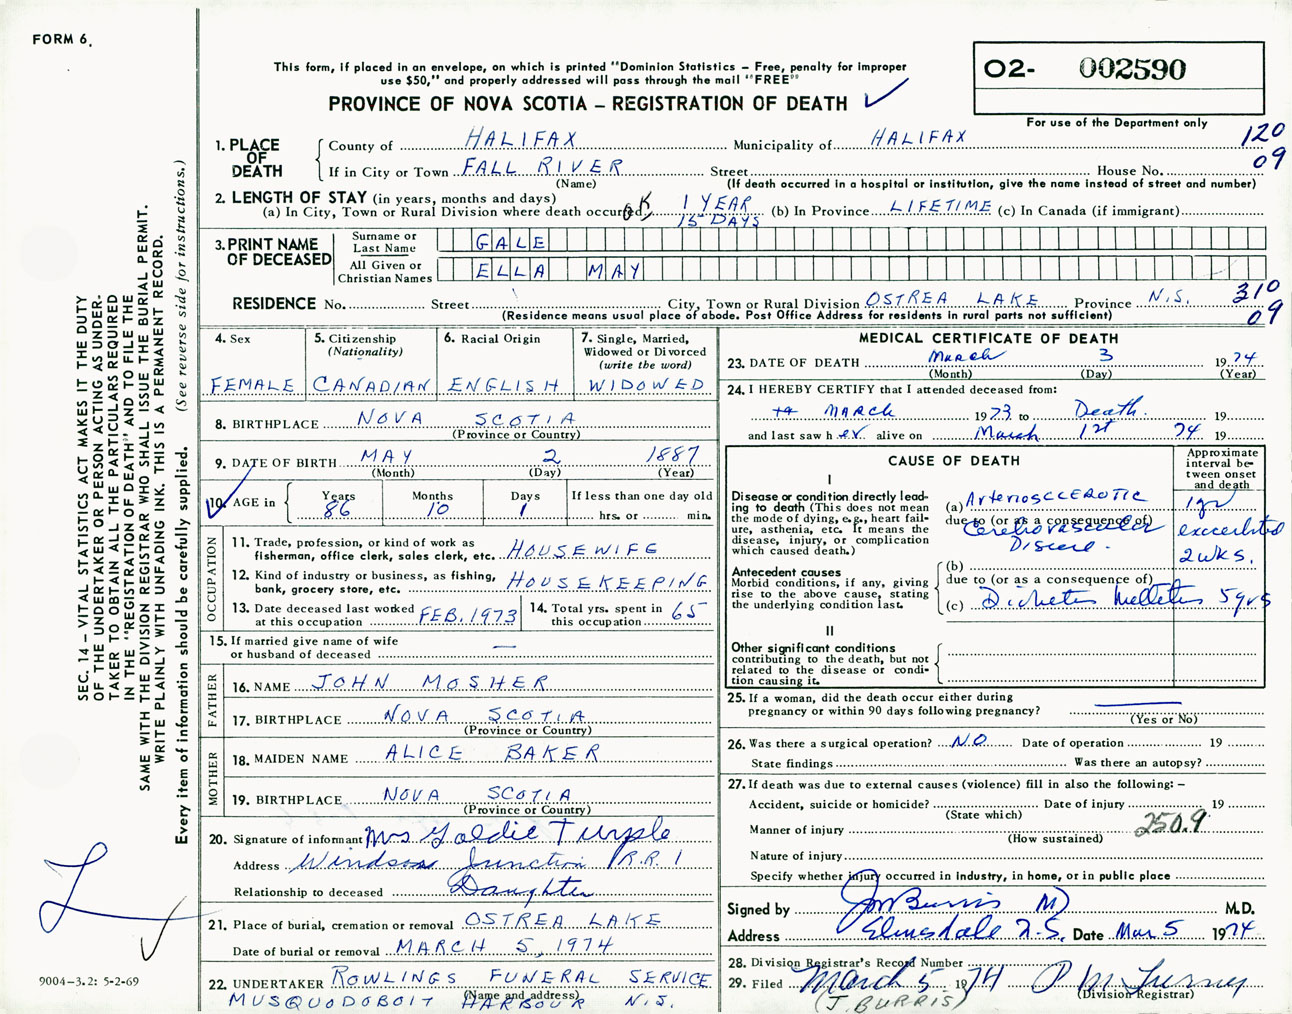 FORM 6.
This form, if placed in an envelope, on which is printed "Dominion Statistics – Free, penalty for improper
use $50," and properly addressed will pass through the mail "FREE"
PROVINCE OF NOVA SCOTIA – REGISTRATION OF DEATH
02- 002590
For use of the Department only
120
09
1. PLACE OF DEATH
County of HALIFAX Municipality of HALIFAX
If in City or Town FALL RIVER Street House No.
(Name) (If death occurred in a hospital or institution, give the name instead of street and number)
2. LENGTH OF STAY (in years, months and days)
(a) In City, Town or Rural Division where death occurred, 1 YEAR 15 DAYS (b) In Province LIFETIME (c) In Canada (if immigrant)
3. PRINT NAME OF DECEASED
Surname or Last Name GALE
All Given or Christian Names ELLA MAY
310
09
RESIDENCE No. Street City, Town or Rural Division OSTREA LAKE Province N.S.
(Residence means usual place of abode. Post Office Address for residents in rural parts not sufficient)
4. Sex FEMALE
5. Citizenship (Nationality) CANADIAN
6. Racial Origin ENGLISH
7. Single, Married, Widowed or Divorced (write the word) WIDOWED
8. BIRTHPLACE NOVA SCOTIA
(Province or Country)
9. DATE OF BIRTH MAY 2 1887
(Month) (Day) (Year)
10. AGE in Years 86 Months 10 Days 1 If less than one day old hrs. or min.
OCCUPATION
11. Trade, profession, or kind of work as fisherman, office clerk, sales clerk, etc. HOUSEWIFE
12. Kind of industry or business, as fishing, bank, grocery store, etc. HOUSEKEEPING
13. Date deceased last worked at this occupation FEB. 1973
14. Total yrs. spent in this occupation 65
15. If married give name of wife or husband of deceased —
FATHER
16. NAME JOHN MOSHER
17. BIRTHPLACE NOVA SCOTIA
(Province or Country)
MOTHER
18. MAIDEN NAME ALICE BAKER
19. BIRTHPLACE NOVA SCOTIA
(Province or Country)
20. Signature of informant Mrs Goldie Turple
Address Windsor Junction R.R. 1
Relationship to deceased Daughter
21. Place of burial, cremation or removal OSTREA LAKE
Date of burial or removal MARCH 5, 1974
22. UNDERTAKER ROWLINGS FUNERAL SERVICE
(Name and address)
MUSQUODOBOIT HARBOUR N.S.
MEDICAL CERTIFICATE OF DEATH
23. DATE OF DEATH March 3 1974
(Month) (Day) (Year)
24. I HEREBY CERTIFY that I attended deceased from:
MARCH 1973 to Death. 19
and last saw her alive on March 1st 74 19
CAUSE OF DEATH
Approximate interval between onset and death
I
Disease or condition directly leading to death (This does not mean the mode of dying, e.g., heart failure, asthenia, etc. It means the disease, injury, or complication which caused death.)
(a) Arteriosclerotic 1 yr
due to (or as a consequence of)
Cerebrovascular Disease. 2 wks.
Antecedent causes
Morbid conditions, if any, giving rise to the above cause, stating the underlying condition last.
(b)
due to (or as a consequence of)
(c) Diabetes Mellitus 5 yrs
II
Other significant conditions
contributing to the death, but not related to the disease or condition causing it.
25. If a woman, did the death occur either during pregnancy or within 90 days following pregnancy?
(Yes or No)
26. Was there a surgical operation? NO Date of operation 19
State findings Was there an autopsy?
27. If death was due to external causes (violence) fill in also the following: –
Accident, suicide or homicide? Date of injury 19
(State which)
Manner of injury 250.9
(How sustained)
Nature of injury
Specify whether injury occurred in industry, in home, or in public place
Signed by JM Burris MD M.D.
Address Elmsdale N.S. Date Mar 5 1974
28. Division Registrar's Record Number
29. Filed March 5 1974
(Division Registrar)
(J. BURRIS)
SEC. 14 – VITAL STATISTICS ACT MAKES IT THE DUTY
OF THE UNDERTAKER OR PERSON ACTING AS UNDER-
TAKER TO OBTAIN ALL THE PARTICULARS REQUIRED
IN THE "REGISTRATION OF DEATH" AND TO FILE THE
SAME WITH THE DIVISION REGISTRAR WHO SHALL ISSUE THE BURIAL PERMIT.
WRITE PLAINLY WITH UNFADING INK. THIS IS A PERMANENT RECORD.
Every item of information should be carefully supplied. (See reverse side for instructions.)
9004-3.2: 5-2-69